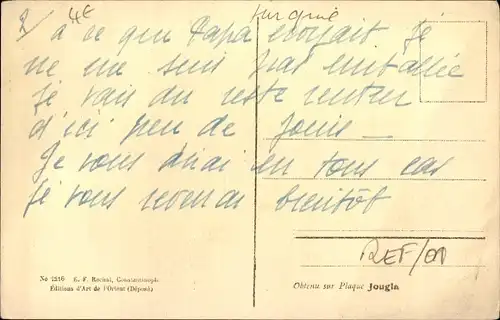 2/ 4€ turquie
à ce que Papa croyait je
ne me suis pas emballée
Je vais du reste rentrer
d'ici peu de jours —
Je vous dirai en tous cas
Je vous reverrai bientôt
REF/01
No 1216 E. F. Rochat, Constantinople
Editions d'Art de l'Orient (Déposé)
Obtenu sur Plaque Jougla